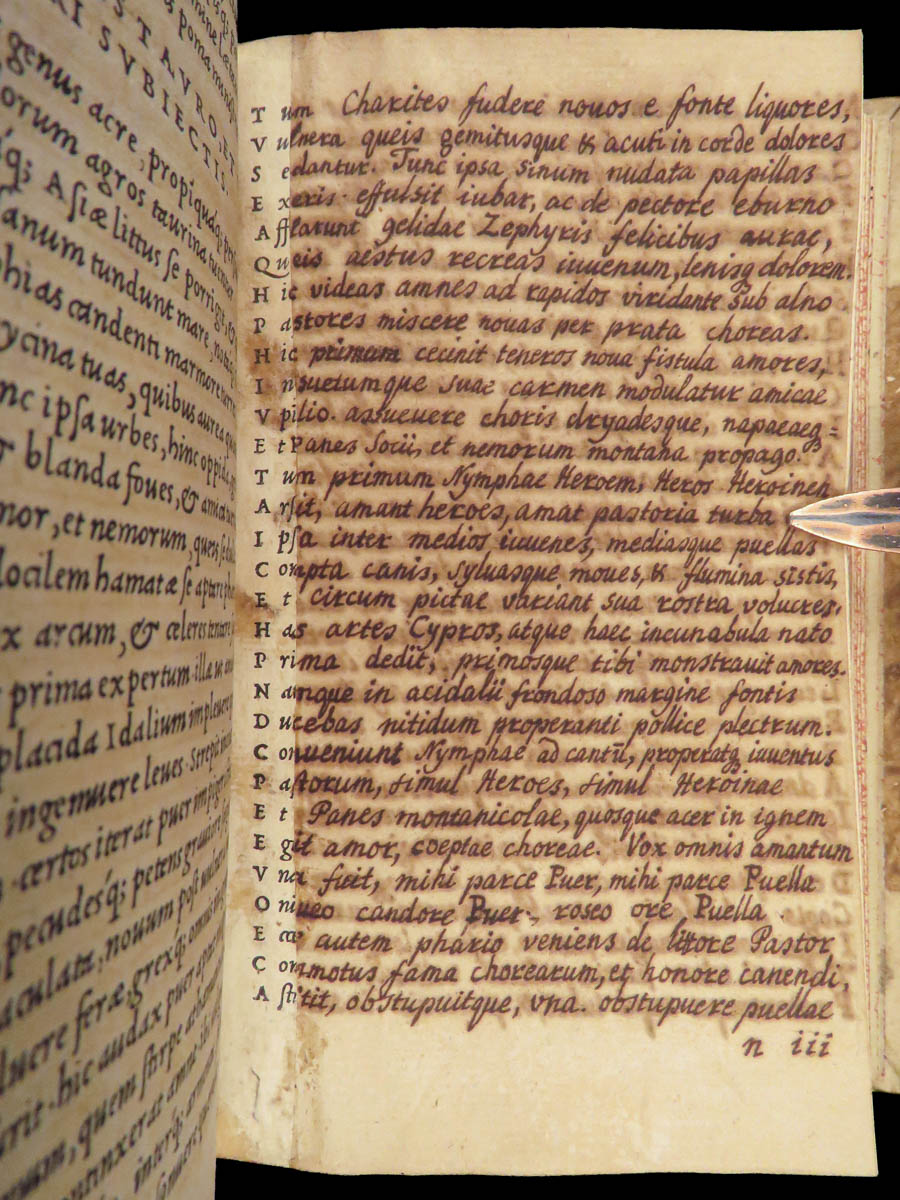 S TAVRO, ET
RI SVBIECTIS.
genus acre, propiquaq;
orum agros taurina
q; Asiæ littus se porrigit,
anum tundunt mare,
phias candenti marmore
ycina tuas, quibus aurea
nc ipsa urbes, hinc oppida
blanda foues, & amica
mor, et nemorum, quens
docilem hamatæ se aptare
x arcum, & celeres
prima expertum illæ
placida Idalium impleuere
ingemuere leues. Strepit
certos iterat puer
pecudesq; petens
aculata, nouum post
luere feræ, grexq; omnis
hic audax puer
quem stirpe
Tum Charites fudere nouos e fonte liquores,
Vulnera queis gemitusque & acuti in corde dolores
Sedantur. Tunc ipsa sinum nudata papillas
Exeris effulsit iubar, ac de pectore eburno
Afflarunt gelidae Zephyris felicibus aurae,
Queis aestus recreas iuuenum, lenisq dolorem.
Hic videas amnes ad rapidos viridante sub alno
Pastores miscere nouas per prata choreas.
Hic primum cecinit teneros noua fistula amores,
Insuetumque suae carmen modulatur amicae
Vpilio. assueuere choris dryadesque, napaeaeq=
Et Panes Socii, et nemorum montana propago.
Tum primum Nymphae Heroem, Heros Heroinen
Arsit, amant heroes, amat pastoria turba
Ipsa inter medios iuuenes, mediasque puellas
Compta canis, syluasque moues, & flumina sistis,
Et circum pictae variant sua rostra volucres.
Has artes Cypros, atque haec incunabula nato
Prima dedit, primosque tibi monstrauit amores.
Namque in acidalii frondoso margine fontis
Ducebas nitidum properanti pollice plectrum.
Conueniunt Nymphae ad cantū, properatq iuuentus
Pastorum, simul Heroes, simul Heroinae
Et Panes montanicolae, quosque acer in ignem
Egit amor, coeptae choreae. Vox omnis amantum
Vna fuit, mihi parce Puer, mihi parce Puella
O niueo candore Puer, roseo ore Puella.
Ecce autem phario veniens de littore Pastor
Commotus fama chorearum, et honore canendi,
Astitit, obstupuitque, vna. obstupuere puellae
n iii